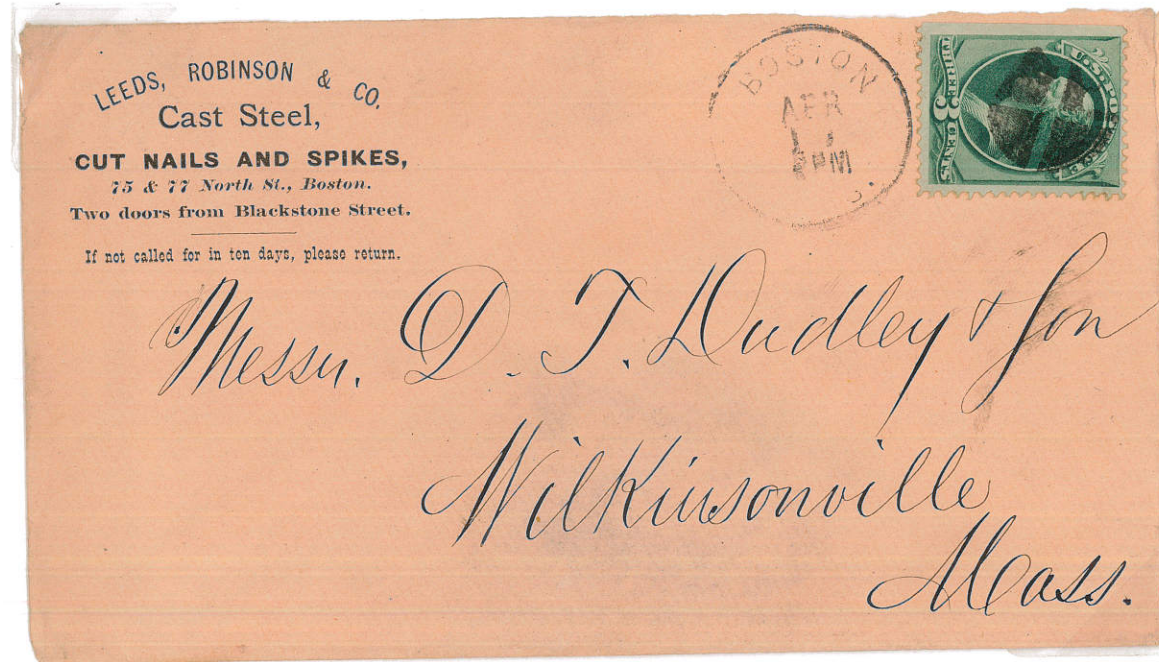 LEEDS, ROBINSON & CO.
Cast Steel,
CUT NAILS AND SPIKES,
75 & 77 North St., Boston.
Two doors from Blackstone Street.
If not called for in ten days, please return.
BOSTON
APR
PM
U.S. POSTAGE
THREE 3 CENTS
Messrs. D. T. Dudley & Son
Wilkinsonville
Mass.